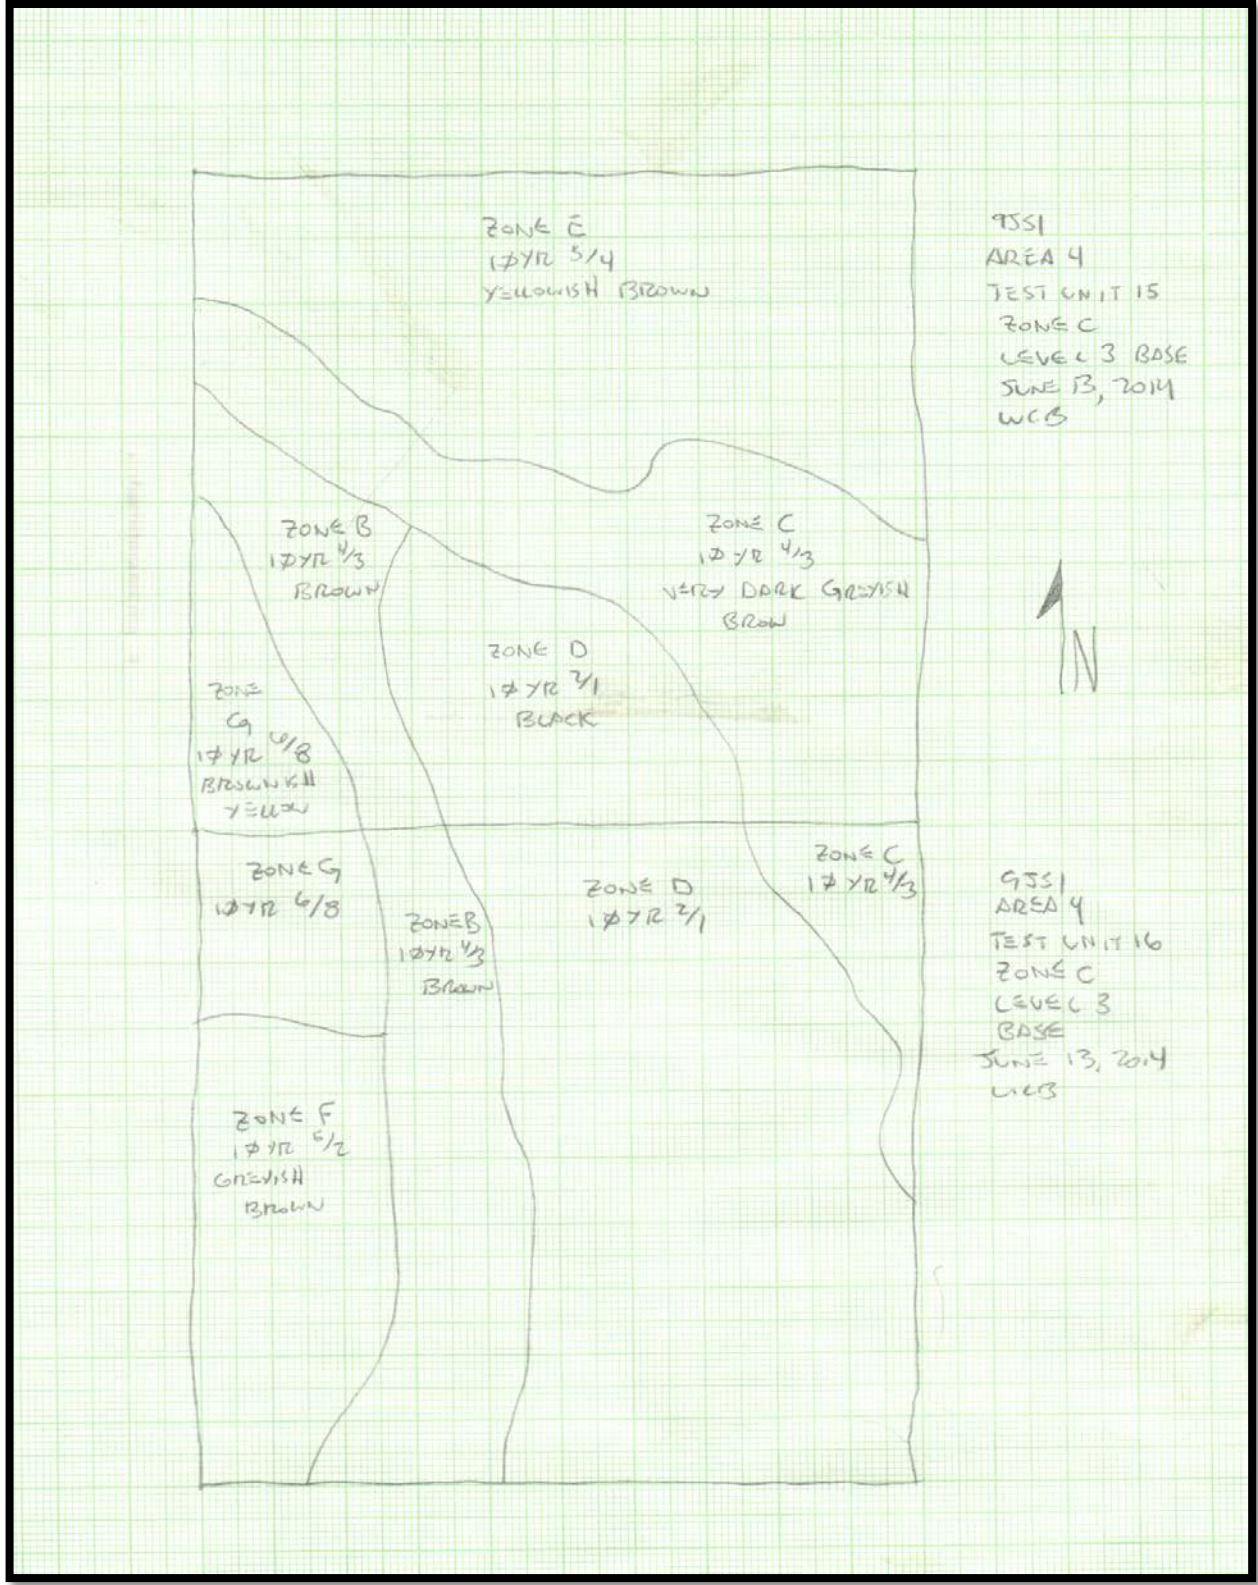 ZONE E
10YR 5/4
YELLOWISH BROWN
9JS1
AREA 4
TEST UNIT 15
ZONE C
LEVEL 3 BASE
JUNE 13, 2014
WCB
ZONE B
10YR 4/3
BROWN
ZONE C
10 YR 4/3
VERY DARK GREYISH
BROW
ZONE D
10 YR 2/1
BLACK
N
ZONE
G
10 YR 6/8
BROWNISH
YELLOW
ZONE G
10YR 6/8
ZONE B
10YR 4/3
BROWN
ZONE D
10YR 2/1
ZONE C
10 YR 4/3
9JS1
AREA 4
TEST UNIT 16
ZONE C
LEVEL 3
BASE
JUNE 13, 2014
WCB
ZONE F
10 YR 5/2
GREYISH
BROWN